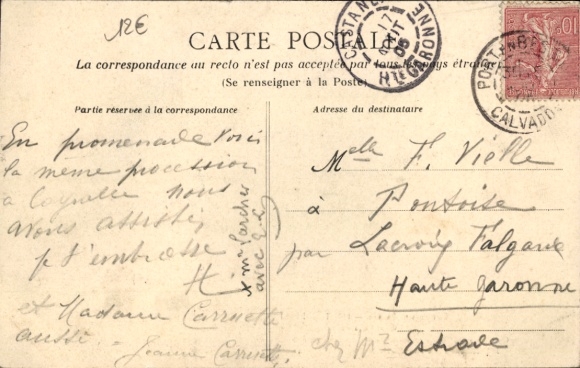 12€
CARTE POSTALE
La correspondance au recto n'est pas acceptée par tous les pays étrangers
(Se renseigner à la Poste)
CASTAN
17 AOUT 05
HTE GARONNE
PORT-EN-B
CALVADOS
10
Partie réservée à la correspondance
Adresse du destinataire
En promenade Voici
la même procession
a laquelle nous
avons assisté
je t'embrasse
H.
et Madame Carruette
aussi - Jeanne Carruette
avec
Melle F. Vielle
à Pontoise
par Lacroix Falgarde
Haute Garonne
chez Mr Estrade